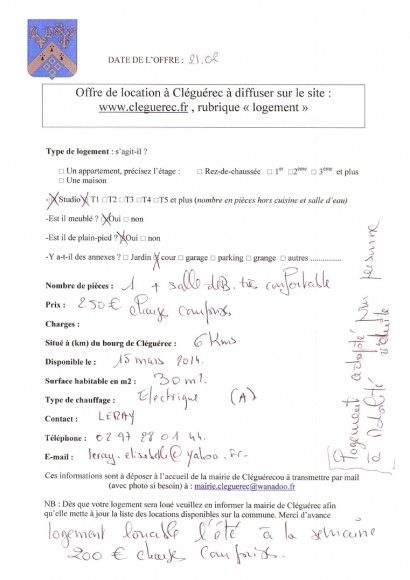 DATE DE L'OFFRE : 21.02
Offre de location à Cléguérec à diffuser sur le site :
www.cleguerec.fr , rubrique « logement »
Type de logement : s'agit-il ?
□ Un appartement, précisez l'étage : □ Rez-de-chaussée □ 1er □2ème □ 3ème et plus
□ Une maison
-☒Studio☒ T1 □T2 □T3 □T4 □T5 et plus (nombre en pièces hors cuisine et salle d'eau)
-Est il meublé ? ☒Oui □ non
-Est il de plain-pied ? ☒Oui □ non
-Y a-t-il des annexes ? □ Jardin ☒ cour □ garage □ parking □ grange □ autres ...............
Nombre de pièces : 1 + salle de B. très confortable
Prix : 250 € charges comprises
Charges :
Situé à (km) du bourg de Cléguérec : 6 Kms
Disponible le : 15 mars 2014.
Surface habitable en m2 : 30 m2.
Type de chauffage : Electrique (A)
Contact : LERAY
Téléphone : 02 97 28 01 44.
E-mail : leray.elisabelle@yahoo.fr.
logement adapté pour personne
à mobilité réduite
Ces informations sont à déposer à l'accueil de la mairie de Cléguérecou à transmettre par mail
(avec photo si besoin) à : mairie.cleguerec@wanadoo.fr
NB : Dès que votre logement sera loué veuillez en informer la mairie de Cléguérec afin
qu'elle mette à jour la liste des locations disponibles sur la commune. Merci d'avance
logement louable l'été à la semaine
200 € charges comprises.